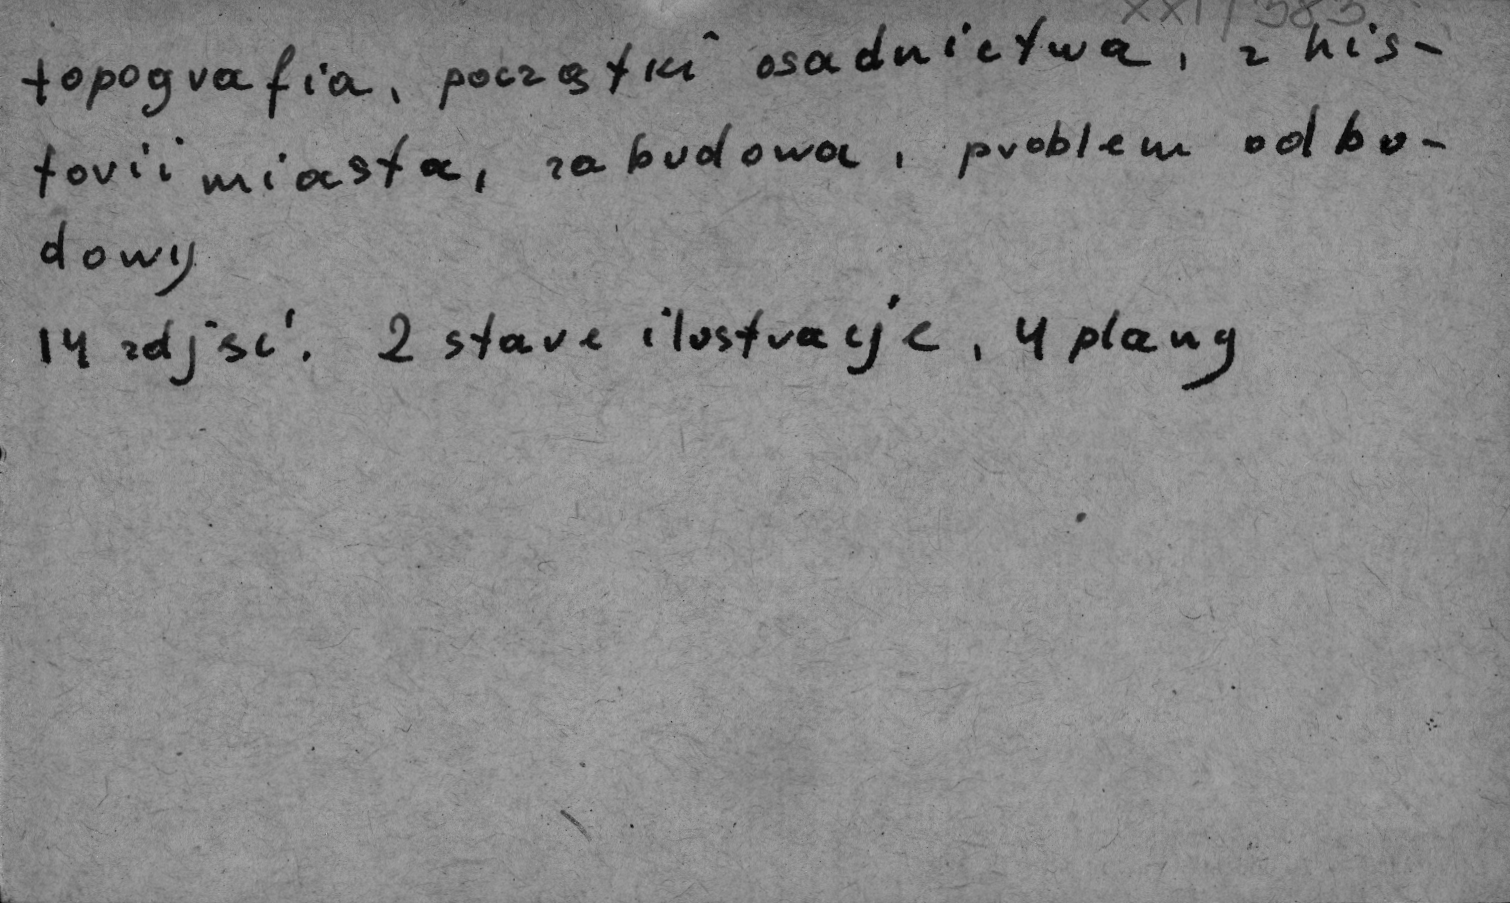 XXI/383
topografia, początki osadnictwa, z his-
torii miasta, zabudowa, problem odbu-
dowy
14 zdjęć, 2 stare ilustracje, 4 plany